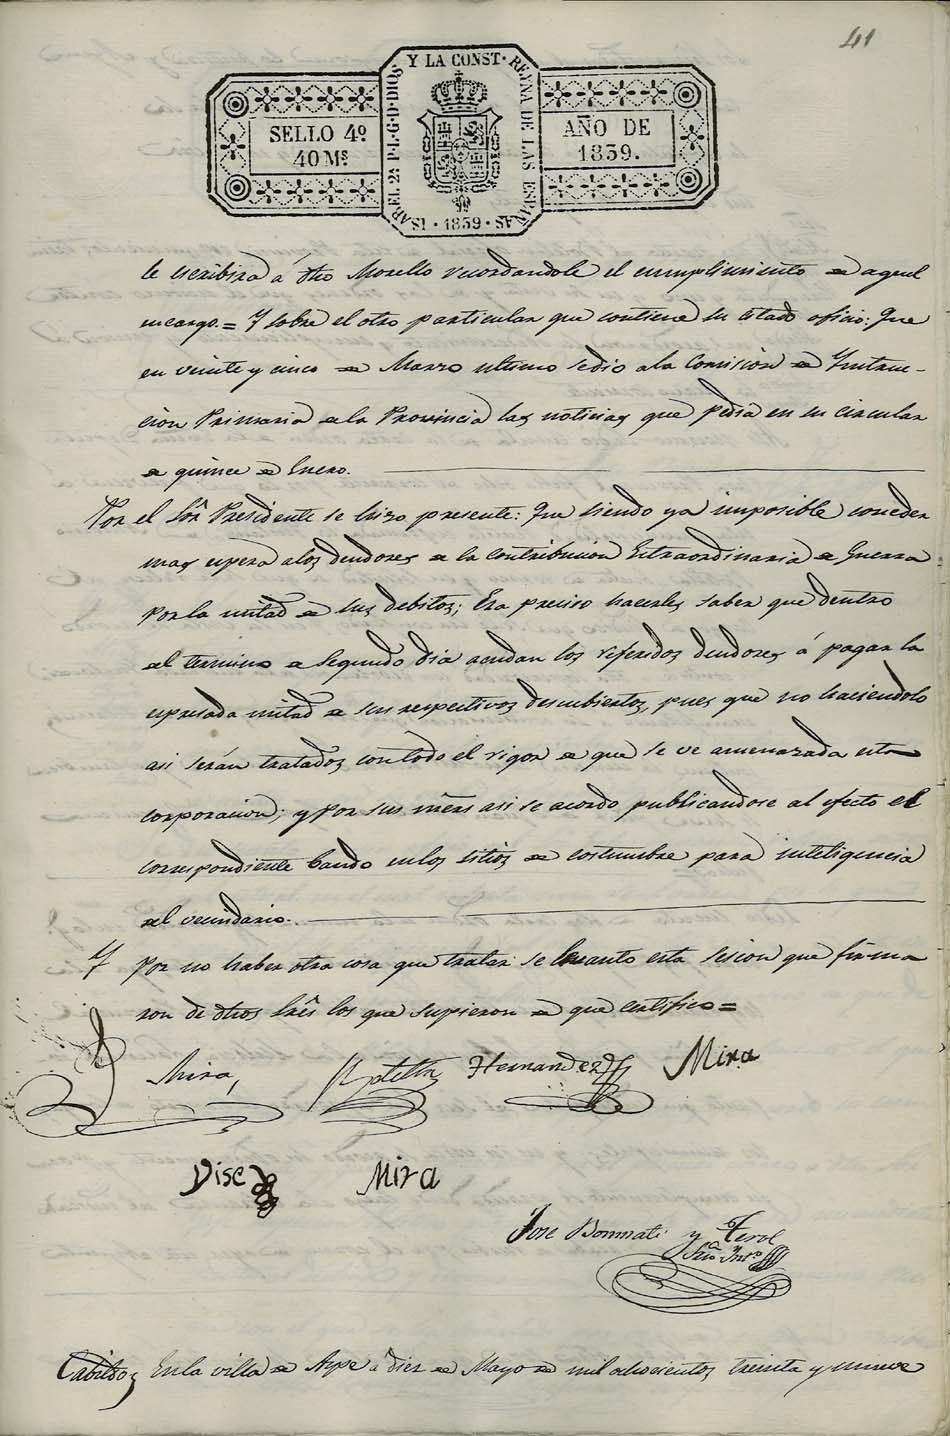 41
ISABEL 2ª P.L.G.D.DIOS Y LA CONST. REYNA DE LAS ESPAÑAS. 1839
SELLO 4º
40 Ms
AÑO DE
1839.
le escribira á dho Morello recordandole el cumplimiento de aquel
encargo.= Y sobre el otro particular que contiene su citado oficio: Que
en veinte y cinco de Marzo ultimo se dio a la Comision de Instruc-
cion Primaria de la Provincia las noticias que pedia en su circular
de quince de Enero.
Por el Sôr Presidente se hizo presente: Que siendo ya imposible conceder
mas espera a los deudores de la contribucion Extraordinaria de Guerra
por la mitad de sus debitos; Era preciso hacerles saber que dentro
del termino de segundo dia acudan los referidos deudores á pagar la
espresada mitad de sus respectivos descubiertos, pues que no haciendolo
asi serán tratados con todo el rigor de que se ve amenazada esta
corporacion; y por sus mêrs asi se acordo publicandose al efecto el
correspondiente bando en los sitios de costumbre para inteligencia
del vecindario.
Y por no haber otra cosa que tratar se levanto esta sesion que firma
ron de dhos Srês los que supieron de que certifico=
Mira,
Hernandez
Mira
Mira
Jose Bonmati y Terol
Srio Intº
Cabildo, En la villa de Aspe á diez de Mayo de mil ochocientos treinta y nueve